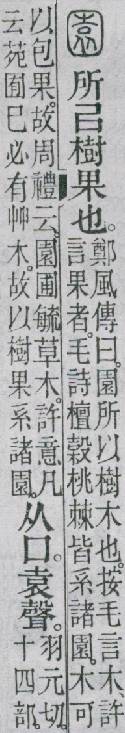 園
所㠯樹果也。
鄭風傳曰。園所以樹木也。按毛言木。許
言果者。毛詩檀榖桃棘皆系諸園。木可
以包果。故周禮云。園圃毓草木。許意凡
云苑囿已必有艸木。故以樹果系諸園。
从囗。袁聲。
羽元切。
十四部。